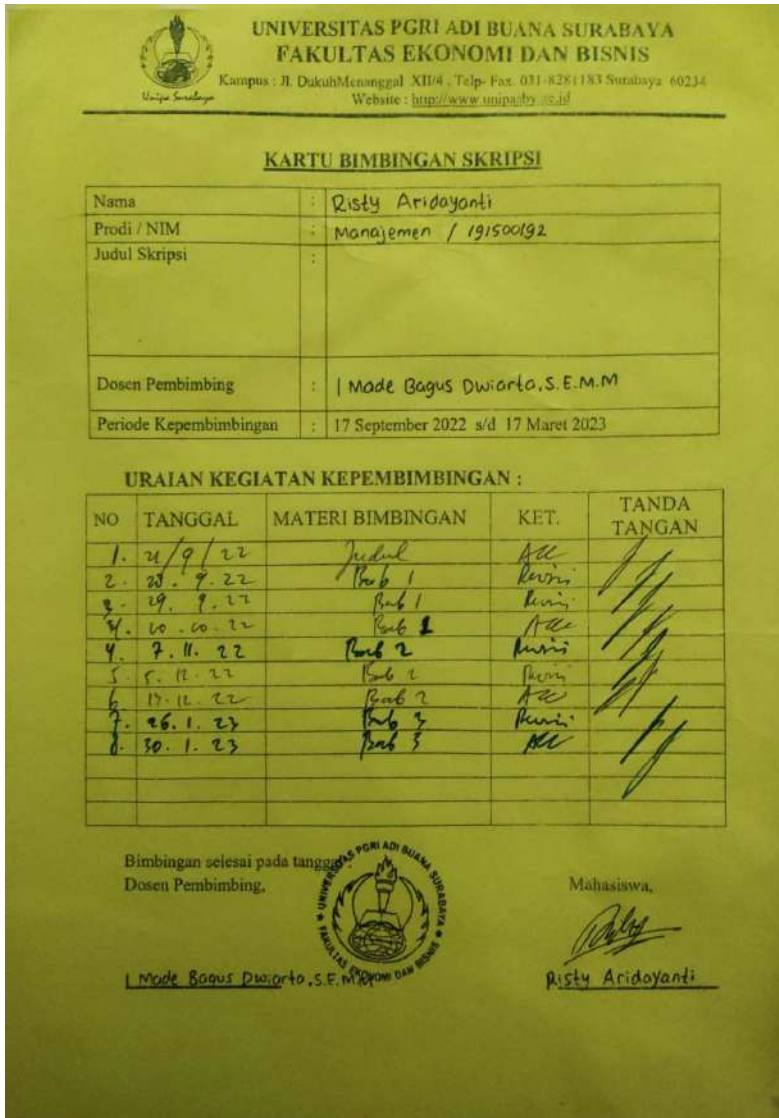 UNIVERSITAS PGRI ADI BUANA SURABAYA
FAKULTAS EKONOMI DAN BISNIS
Kampus : Jl. DukuhMenanggal XII/4 , Telp- Fax. 031-8281183 Surabaya 60234
Website : http://www.unipasby.ac.id
Unipa Surabaya
KARTU BIMBINGAN SKRIPSI
Nama : Risty Aridayanti
Prodi / NIM : Manajemen / 191500192
Judul Skripsi :
Dosen Pembimbing : I Made Bagus Dwiarta, S.E.M.M
Periode Kepembimbingan : 17 September 2022 s/d 17 Maret 2023
URAIAN KEGIATAN KEPEMBIMBINGAN :
NO TANGGAL MATERI BIMBINGAN KET. TANDA TANGAN
1. 21/9/22 Judul Acc
2. 9.22 Bab 1 Revisi
3. 29. 9.22 Bab 1 Revisi
10.22 Bab 1 Acc
4. 7. 11. 22 Bab 2 Revisi
5. 5. 12. 22 Bab 2 Revisi
6. 12. 22 Bab 2 Acc
7. 26. 1. 23 Bab 3 Revisi
8. 30. 1. 23 Bab 3 Acc
Bimbingan selesai pada tanggal
Dosen Pembimbing, Mahasiswa,
UNIVERSITAS PGRI ADI BUANA SURABAYA
FAKULTAS EKONOMI DAN BISNIS
I Made Bagus Dwiarta, S.E. M.M Risty Aridayanti